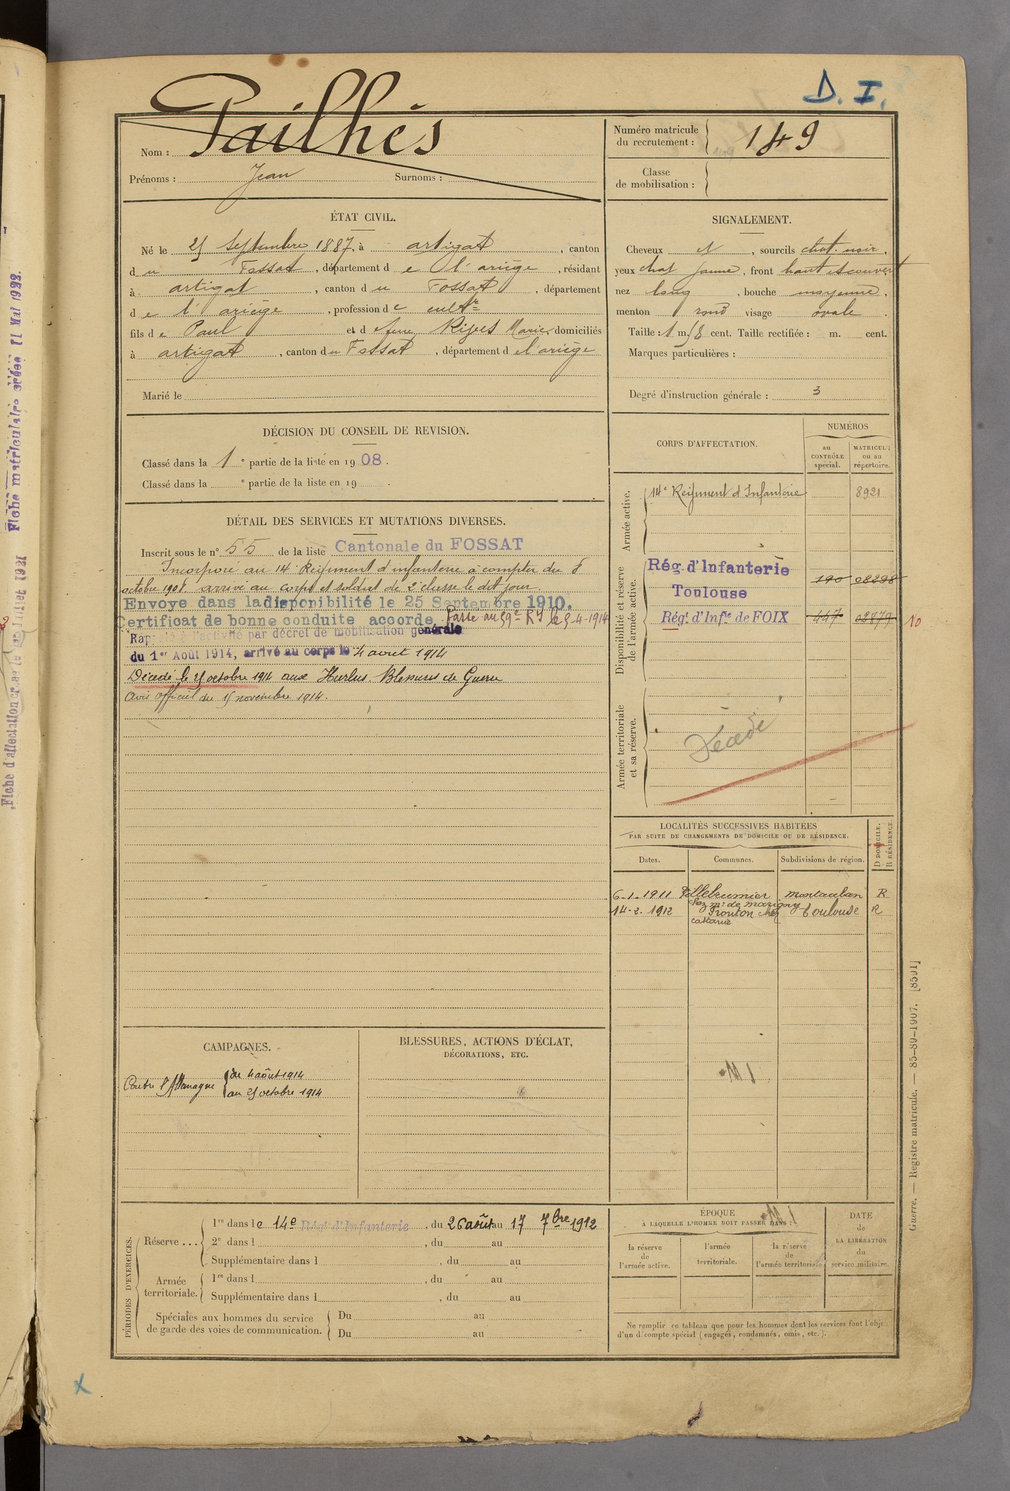 D. I.
Nom : Pailhès
Prénoms : Jean Surnoms :
Numéro matricule du recrutement : 149
Classe de mobilisation :
ÉTAT CIVIL.
Né le septembre 1887, à artigat, canton
du Fossat, département de l'ariège, résidant
à artigat, canton du Fossat, département
de l'ariège, profession de cultr
fils de Paul et de Marie, domiciliés
à artigat, canton du Fossat, département de l'ariège
Marié le
SIGNALEMENT.
Cheveux et, sourcils chat. noir,
yeux chat jaune, front haut découvert
nez long, bouche moyenne,
menton rond visage ovale.
Taille : 1 m. cent. Taille rectifiée : m. cent.
Marques particulières :
Degré d'instruction générale : 3
DÉCISION DU CONSEIL DE REVISION.
Classé dans la 1e partie de la liste en 1908.
Classé dans la e partie de la liste en 19 .
DÉTAIL DES SERVICES ET MUTATIONS DIVERSES.
Inscrit sous le n° 55 de la liste Cantonale du FOSSAT
Incorporé au 14e Régiment d'infanterie à compter du
octobre 1908. arrivé au corps et soldat de 2e classe le dit jour
Envoyé dans la disponibilité le 25 Septembre 1910.
Certificat de bonne conduite accordé. Passé au 59e RI le 4-1914
Rappelé à l'activité par décret de mobilisation générale
du 1er Août 1914, arrivé au corps le 4 aout 1914
Décédé le octobre 1914 aux Hurlus. Blessures de Guerre
Avis officiel du novembre 1914.
CORPS D'AFFECTATION.
NUMÉROS
au CONTRÔLE spécial.
MATRICULE ou au répertoire.
Armée active.
14e Régiment d'Infanterie 8921
Disponibilité et réserve de l'armée active.
Rég. d'Infanterie
Toulouse 190
Rég. d'Infie de FOIX 447
10
Armée territoriale et sa réserve.
Décédé
LOCALITÉS SUCCESSIVES HABITÉES
PAR SUITE DE CHANGEMENTS DE DOMICILE OU DE RÉSIDENCE.
Dates. Communes. Subdivisions de région. D DOMICILE. R RÉSIDENCE.
6-1-1911 Villebrumier montauban R
chez Mr de marigny
14-2-1912 Frouton chez toulouse R
castanié
CAMPAGNES.
Contre l'Allemagne du 4 août 1914
au octobre 1914
BLESSURES, ACTIONS D'ÉCLAT,
DÉCORATIONS, ETC.
PÉRIODES D'EXERCICES.
Réserve ...
1re dans le 14e Rég. d'Infanterie, du 26 août au 17 7bre 1912
2e dans l , du au
Supplémentaire dans l , du au
Armée territoriale.
1re dans l , du au
Supplémentaire dans l , du au
Spéciales aux hommes du service de garde des voies de communication.
Du au
Du au
ÉPOQUE
À LAQUELLE L'HOMME DOIT PASSER DANS :
la réserve de l'armée active.
l'armée territoriale.
la réserve de l'armée territoriale.
DATE de LA LIBÉRATION du service militaire.
Ne remplir ce tableau que pour les hommes dont les services font l'objet
d'un décompte spécial (engagés, condamnés, omis, etc.).
Guerre. — Registre matricule. — 85-89-1907. [8591]